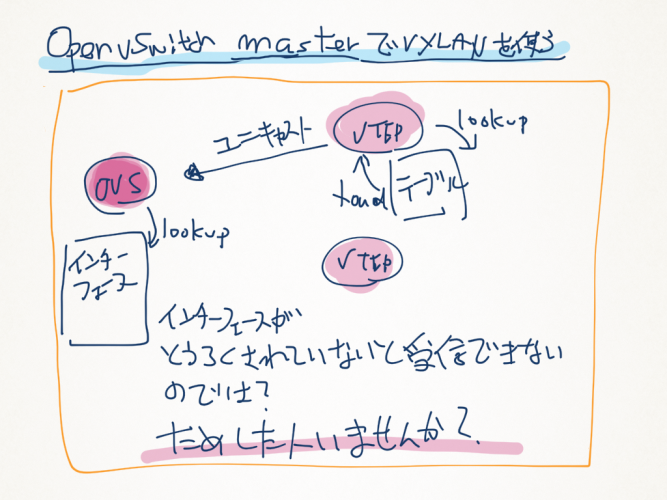 OpenvSwitch masterでVXLANを使う
ユニキャスト
VTEP
lookup
テーブル
OVS
lookup
インターフェース
VTEP
インターフェースが
とうろくされていないと受信できない
のでは?
ためした人いませんか?